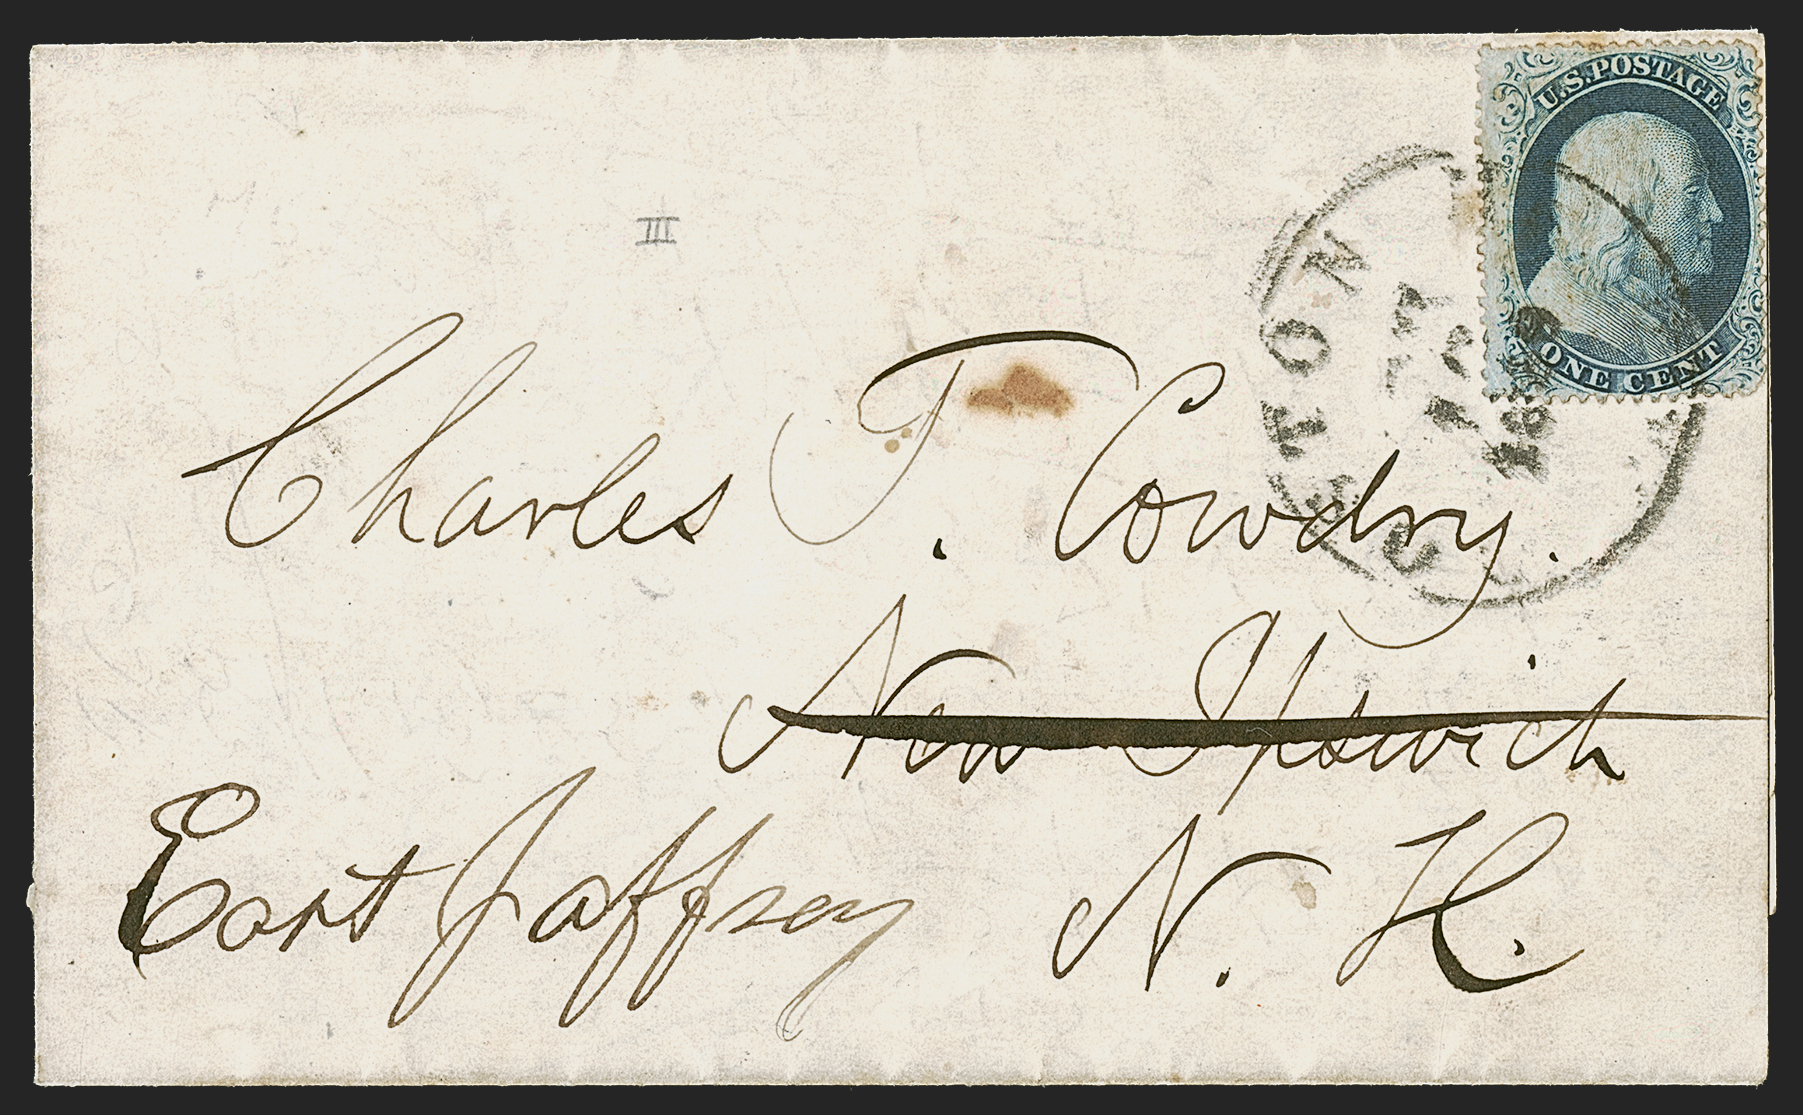 U.S. POSTAGE
ONE CENT
III
TON
Charles T. Cowdry.
New Ipswich
East Jaffrey N. H.